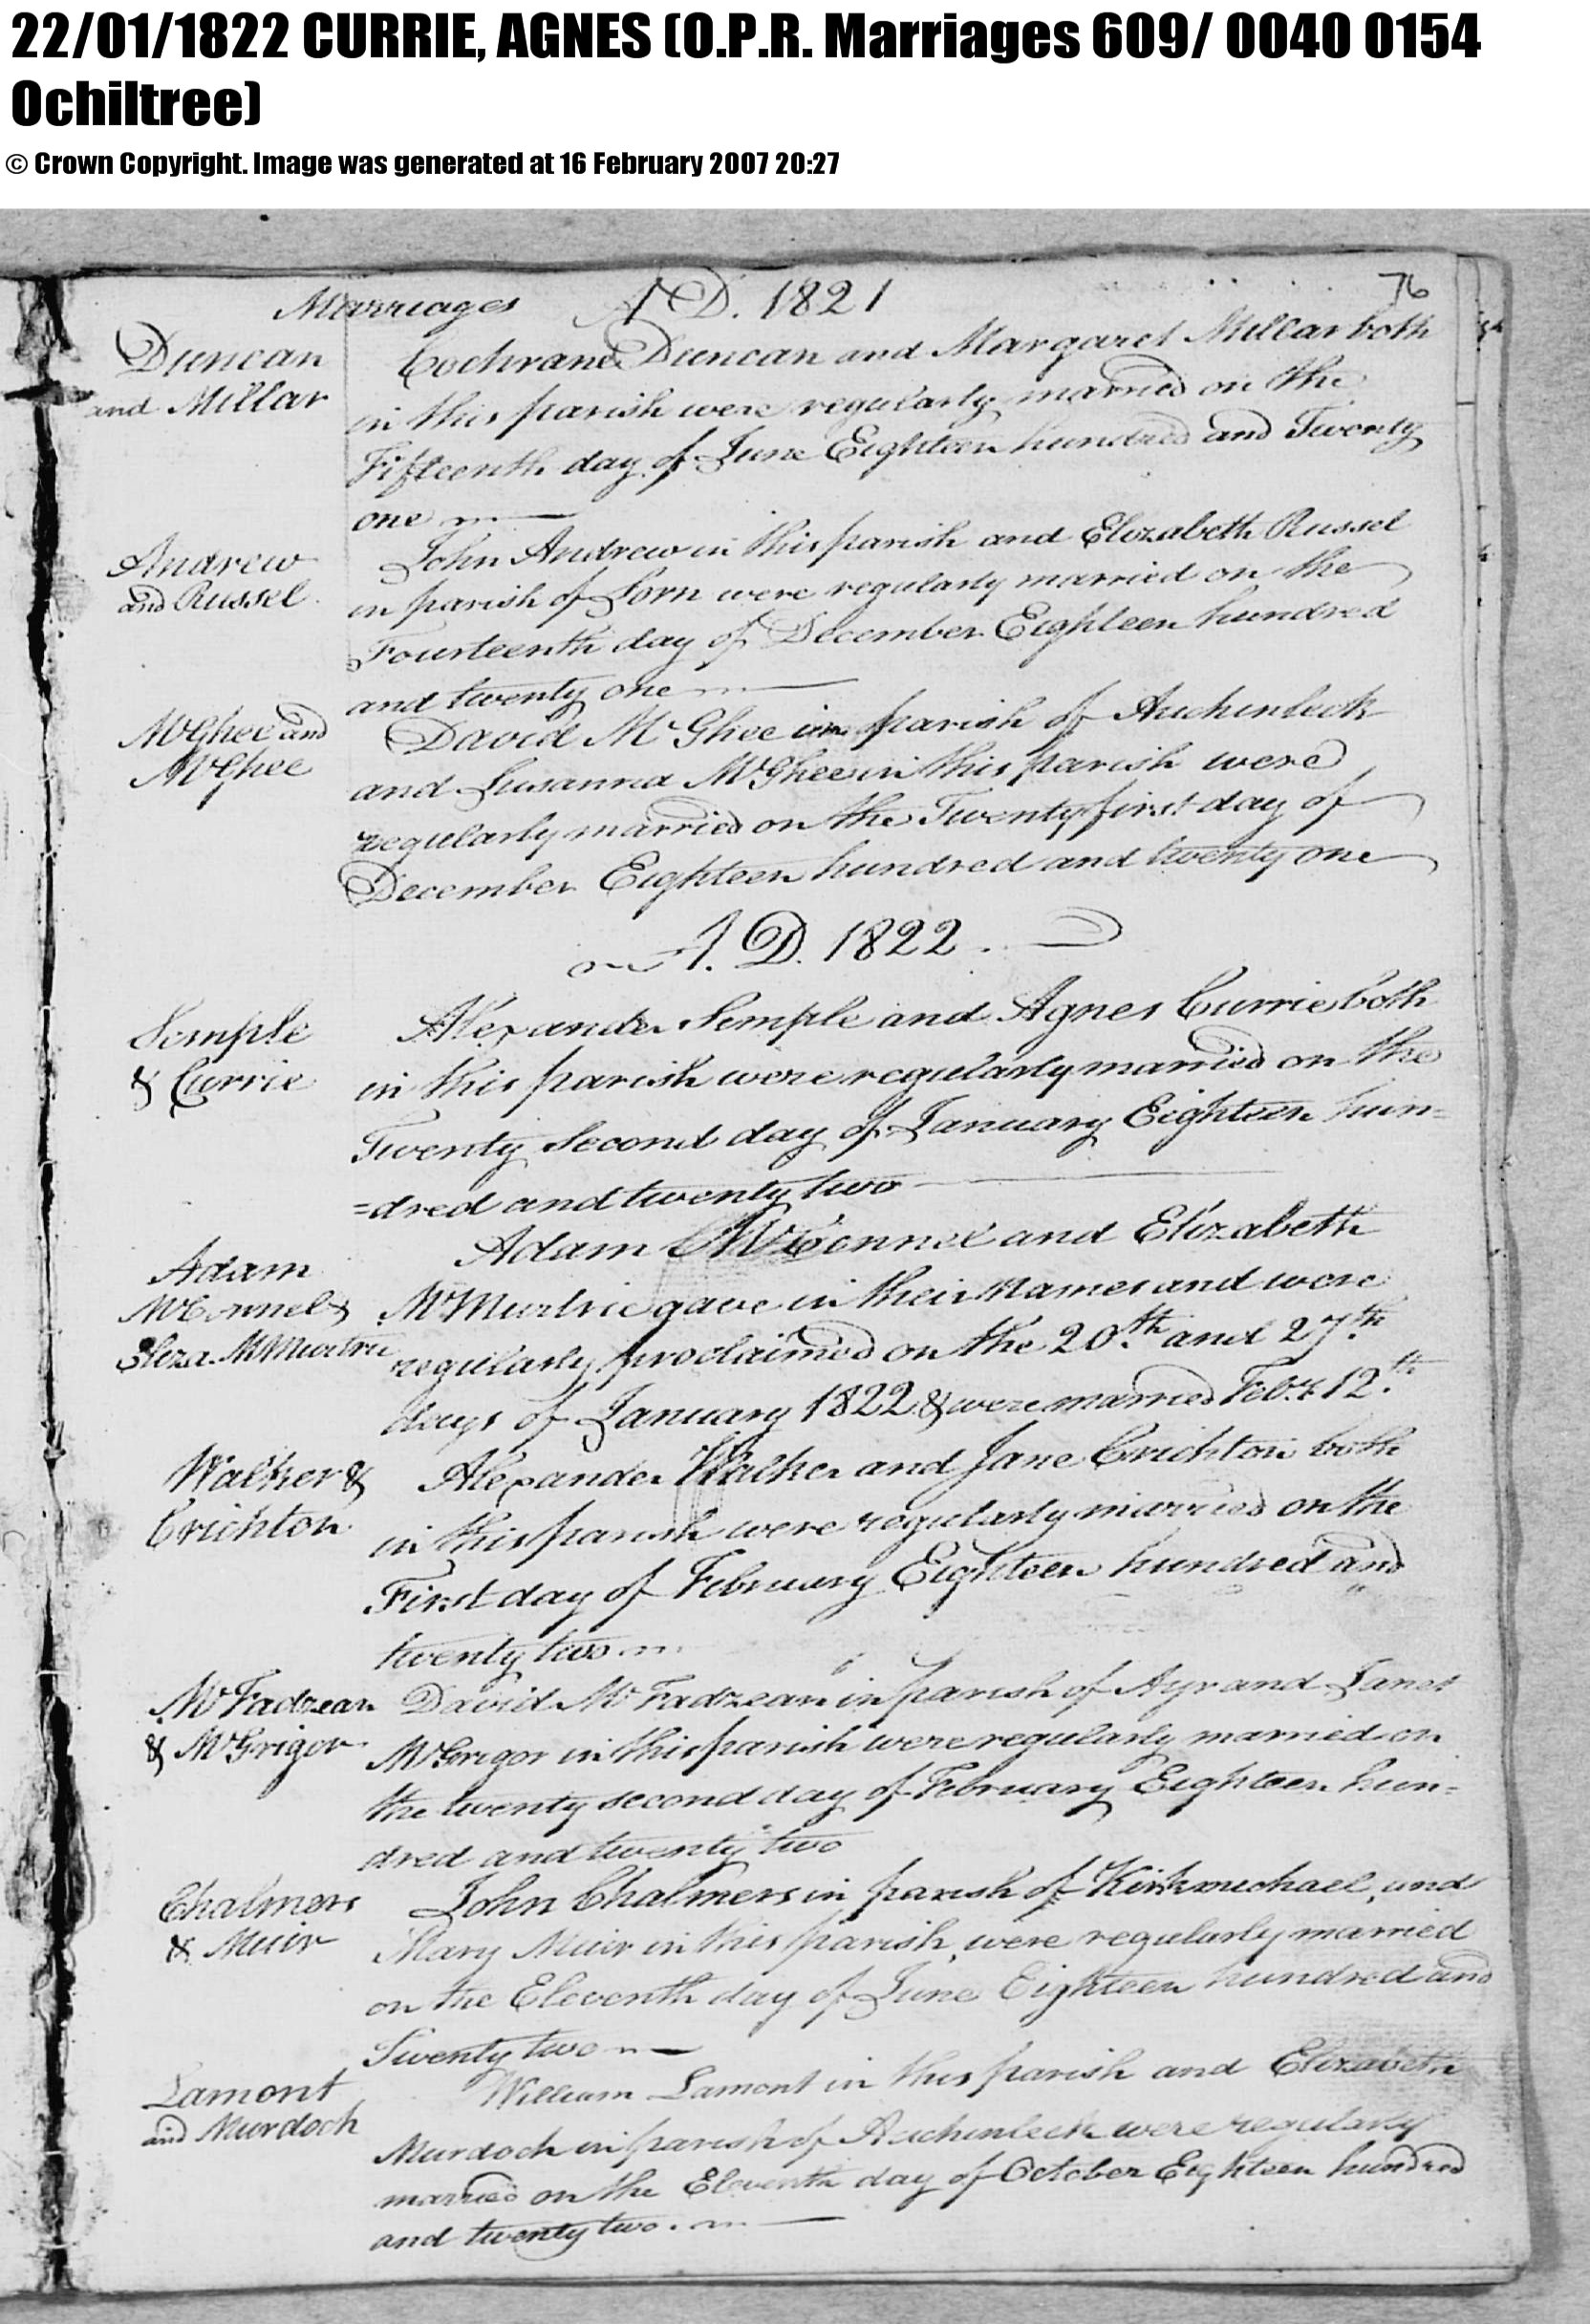 22/01/1822 CURRIE, AGNES (O.P.R. Marriages 609/ 0040 0154
Ochiltree)
© Crown Copyright. Image was generated at 16 February 2007 20:27
Marriages A.D. 1821 76
Duncan
and Millar
Cochrane Duncan and Margaret Millar both
in this parish were regularly married on the
Fifteenth day of June Eighteen hundred and Twenty
one
Andrew
and Russel
John Andrew in this parish and Elizabeth Russel
in parish of Sorn were regularly married on the
Fourteenth day of December Eighteen hundred
and twenty one
McGhee and
McGhee
David McGhee in parish of Auchinleck
and Susanna McGhee in this parish were
regularly married on the Twenty first day of
December Eighteen hundred and twenty one
A.D. 1822.
Semple
& Currie
Alexander Semple and Agnes Currie both
in this parish were regularly married on the
Twenty Second day of January Eighteen hun=
=dred and twenty two
Adam
McConnel &
Eliza. McMurtrie
Adam McConnel and Elizabeth
McMurtrie gave in their names and were
regularly proclaimed on the 20th and 27th
days of January 1822 & were married Feby. 12th
Walker &
Crichton
Alexander Walker and Jane Crichton both
in this parish were regularly married on the
First day of February Eighteen hundred and
twenty two
McFadzean
& McGrigor
David McFadzean in parish of Ayr and Janet
McGrigor in this parish were regularly married on
the twenty second day of February Eighteen hun=
dred and twenty two
Chalmers
& Muir
John Chalmers in parish of Kirkmichael, and
Mary Muir in this parish, were regularly married
on the Eleventh day of June Eighteen hundred and
Twenty two
Lamont
and Murdoch
William Lamont in this parish and Elizabeth
Murdoch in parish of Auchinleck were regularly
married on the Eleventh day of October Eighteen hundred
and twenty two.